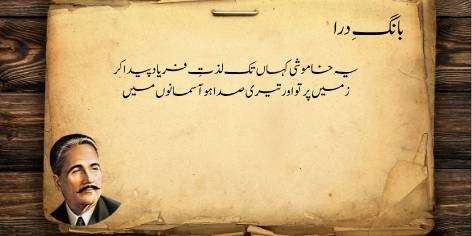 بانگِ درا
یہ خاموشی کہاں تک لذتِ فریاد پیدا کر
زمیں پر تو اور تیری صدا ہو آسمانوں میں